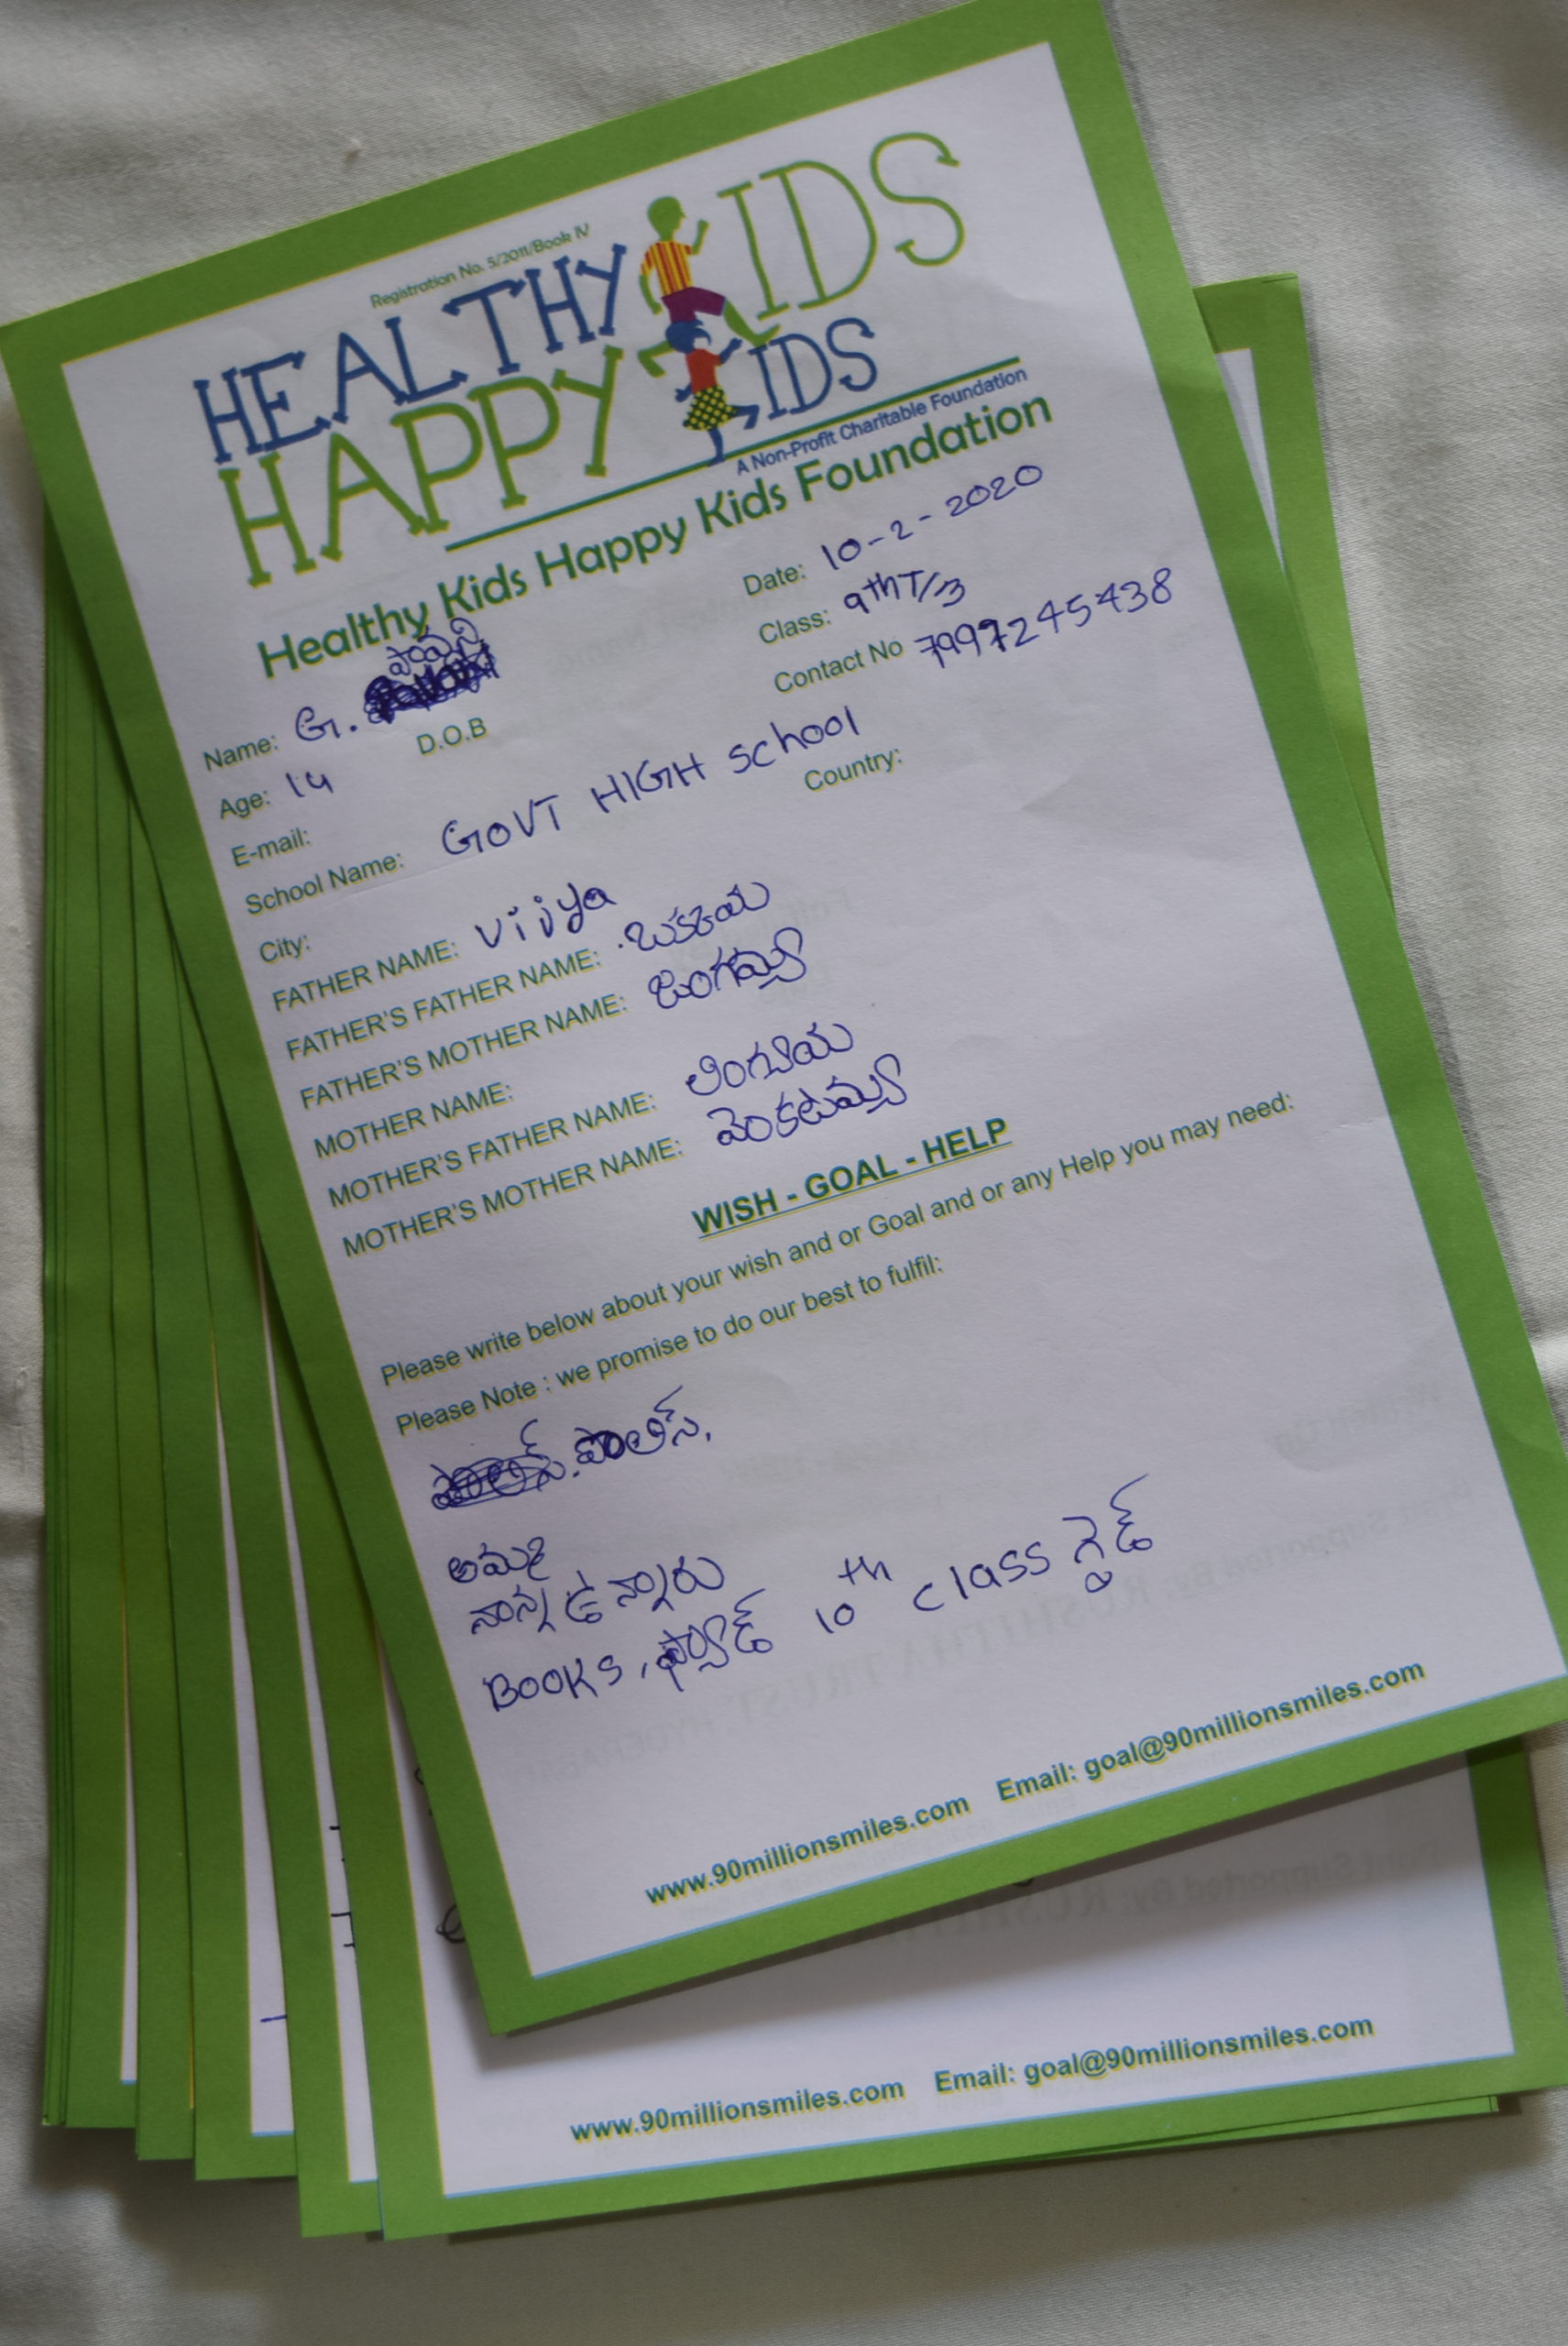 Registration No. 5/2011/Book IV
HEALTHY KIDS
HAPPY KIDS
A Non-Profit Charitable Foundation
Healthy Kids Happy Kids Foundation
Date: 10-2-2020
Name: G. పావని
Class: 9th T/3
Age: 14 D.O.B
Contact No 7997245438
E-mail:
School Name: GOVT HIGH School
City: Country:
FATHER NAME: Vijya
FATHER'S FATHER NAME:
FATHER'S MOTHER NAME: జంగమ్మ
MOTHER NAME:
MOTHER'S FATHER NAME:
MOTHER'S MOTHER NAME: వెంకటమ్మ
WISH - GOAL - HELP
Please write below about your wish and or Goal and or any Help you may need:
Please Note : we promise to do our best to fulfil:
పొలిస్.
అమ్మ
నాన్న ఉన్నారు
BOOKS, ప్యాడ్ 10th class గైడ్
www.90millionsmiles.com Email: goal@90millionsmiles.com
www.90millionsmiles.com Email: goal@90millionsmiles.com